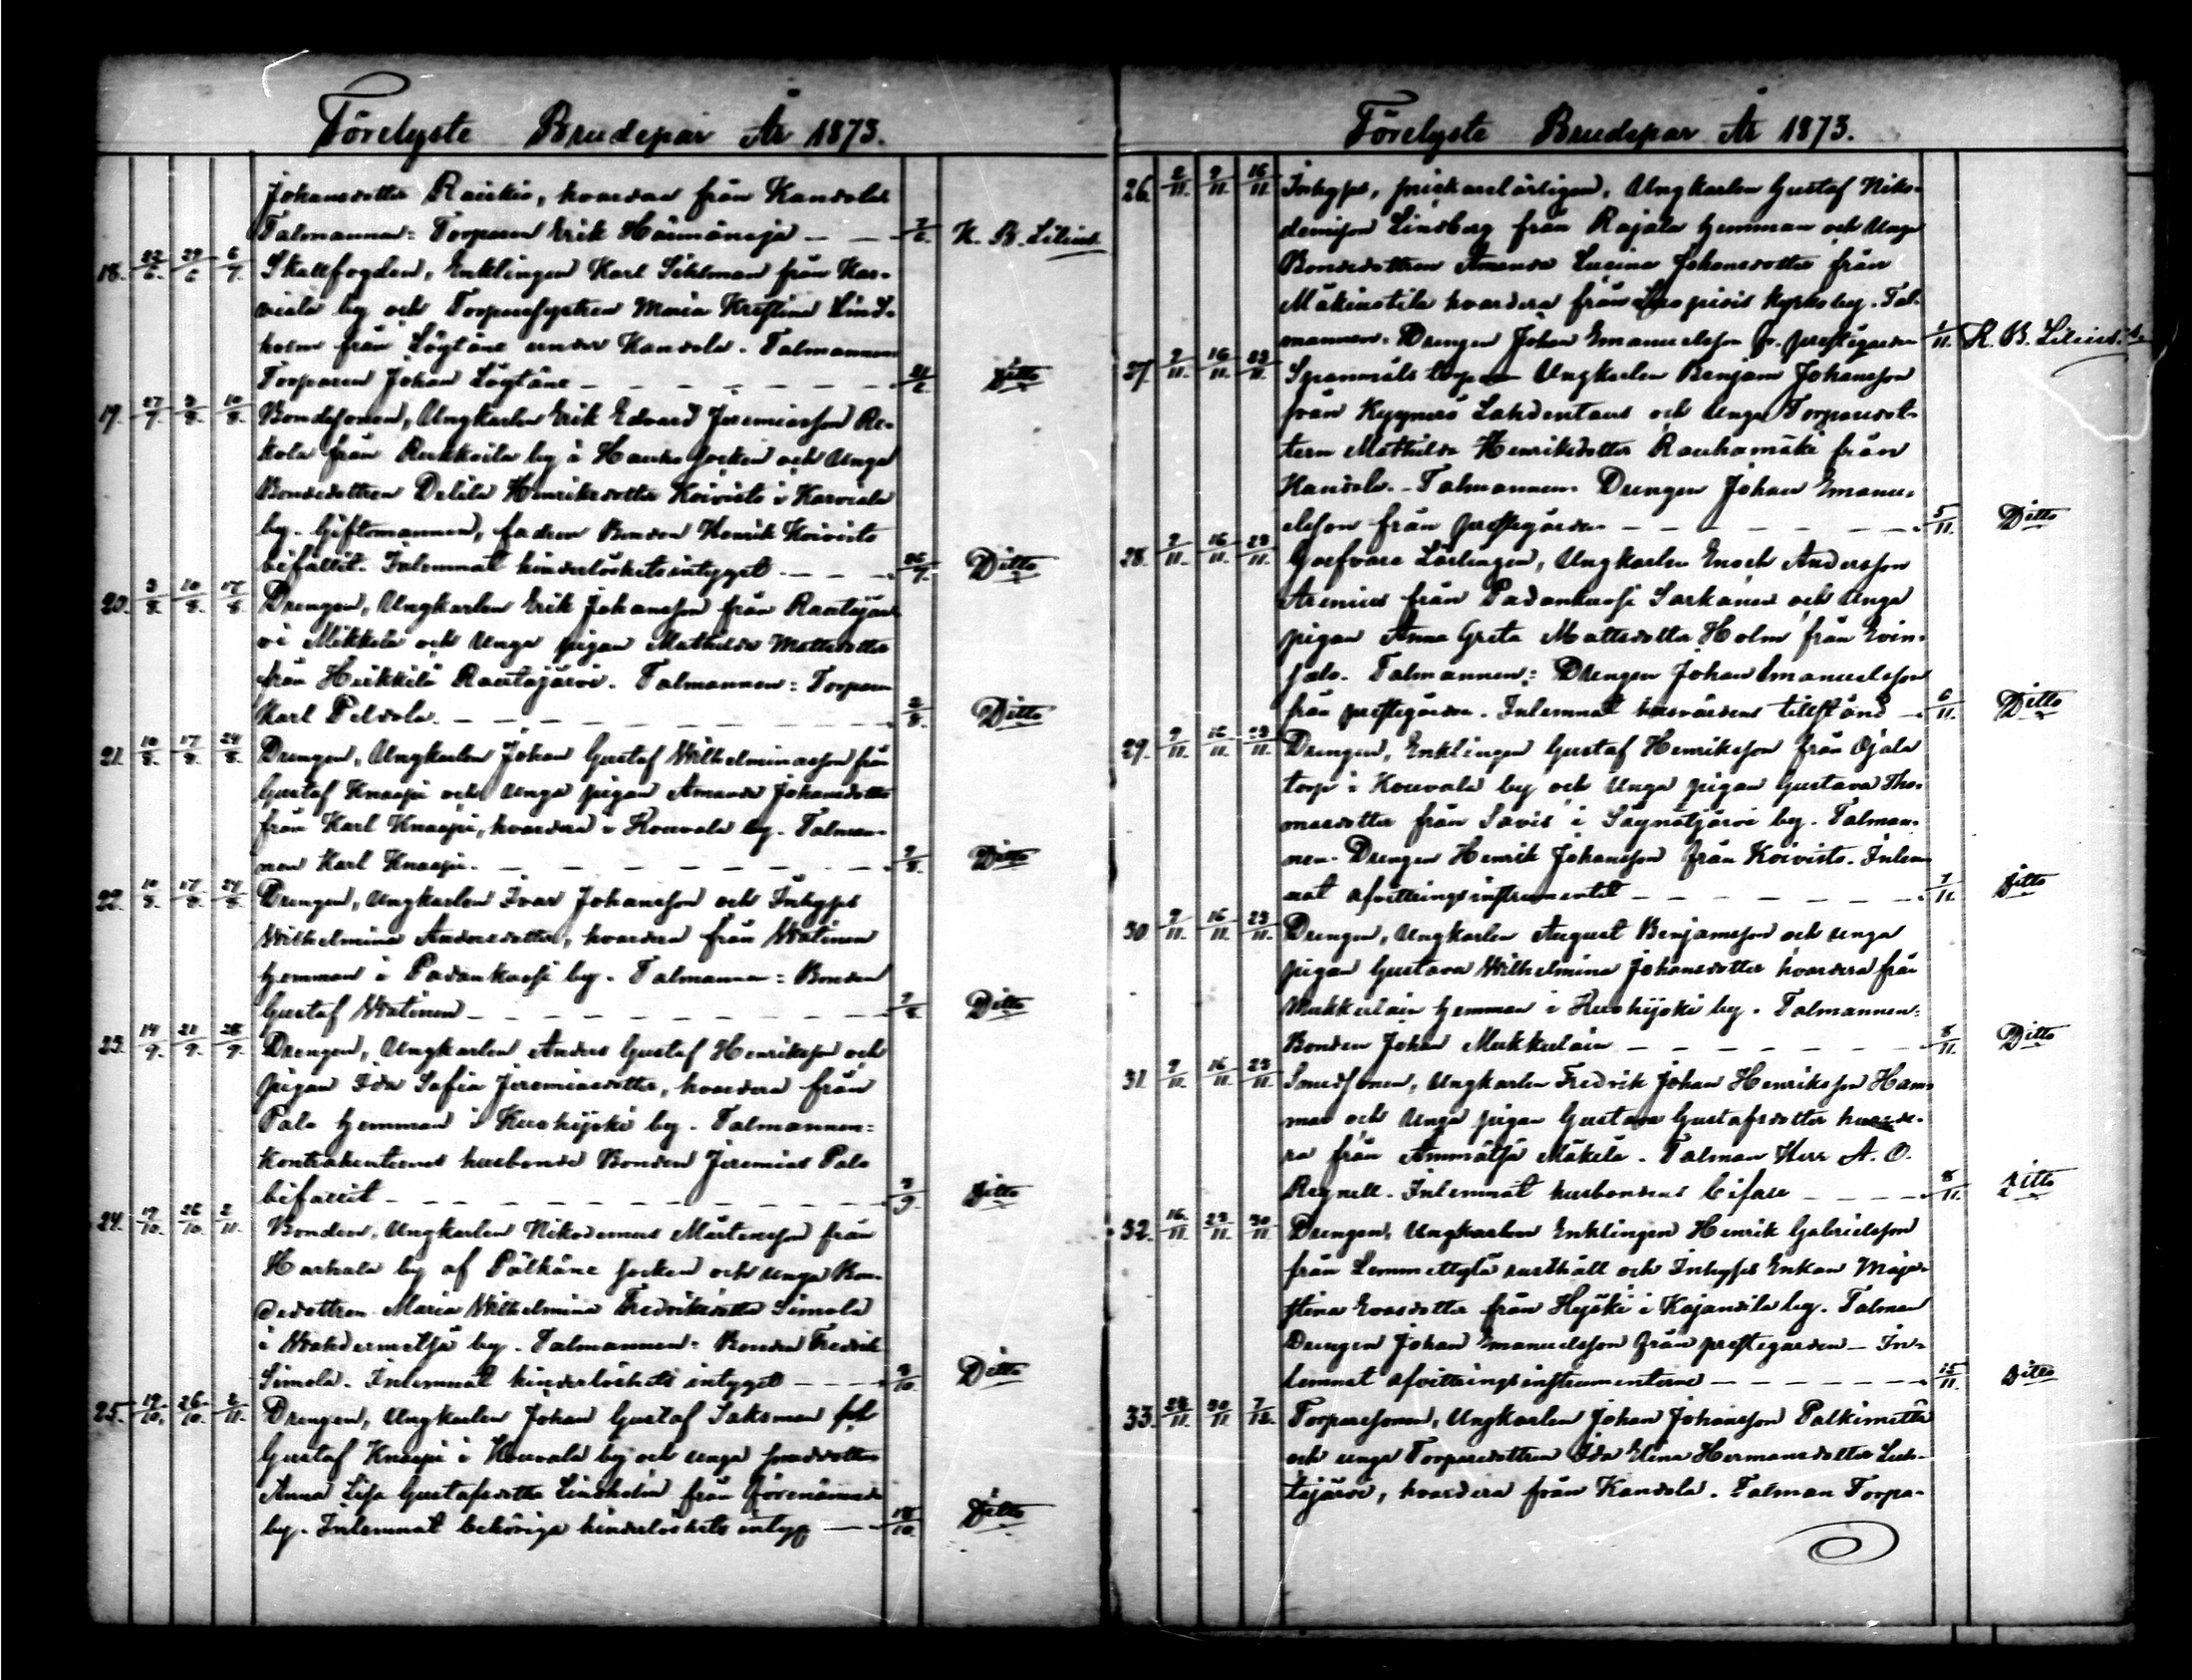 Förelyste Brudepar År 1873.
Johansdotter Raukio, hvardera från Kandola
Talmannen: Torparen Erik Hörmänoja — — 7/6. K. B. Lilius
18. 22/6. 29/6 6/7. Skallfogden, Enklingen Karl Sihlman från Kar-
viala by och Torparesystren Maria Kristina Lind-
holm från Löytäne under Kandola. Talmannen
Torparen Johan Löytäne — — — 21/6. Ditto
19. 27/7 3/8. 10/8. Bondesonen, Ungkarlen Erik Edvard Jeremiasson Re-
kola från Rukkoila by i Hauho socken och Unga
Bondedottren Delila Henriksdotter Koivisto i Karviala
by. Giftomannen, fadren Bonden Henrik Koivisto
bifallit. Inlemnat hinderlöshetsintyget. — — 26/7. Ditto
20. 3/8. 10/8. 17/8. Drengen, Ungkarlen Erik Johansson från Rautajär-
vi Mikkola och Unga pigan Mathilda Mattsdotter
från Heikkilä Rautajärvi. Talmannen: Torparen
Karl Peldola. — — — 2/8. Ditto
21. 10/8. 17/8. 24/8. Drengen, Ungkarlen Johan Gustaf Wilhelminasson från
Gustaf Knaapi och Unga pigan Amanda Johansdotter
från Karl Knaapi, hvardera i Kouvala by. Talman-
nen Karl Knaapi. — — — 9/8. Ditto
22. 10/8. 17/8. 24/8. Drengen, Ungkarlen Ivar Johansson och Inhyses
Wilhelmina Andersdotter, hvardera från Watinen
hemman i Padankoski by. Talmannen: Bonden
Gustaf Watinen — — — 9/8. Ditto
23. 14/9. 21/9. 28/9 Drengen, Ungkarlen Anders Gustaf Henriksson och
pigan Ida Sofia Jeremiasdotter, hvardera från
Palo hemman i Kuohijoki by. Talmannen:
Kontrahenternes husbonde Bonden Jeremias Palo
bifallit — — — 9 Ditto
24. 19/10. 26/10. 2/11. Bonden, Ungkarlen Nikodemus Mårtensson från
Harhala by af Pälkäne socken och unga Bon-
dedottren Maria Wilhelmina Fredriksdotter Simola
i Wahdermetsä by. Talmannen: Bonden Fredrik
Simola. Inlemnat hinderlöshets intyget — — /10. Ditto
25. 19/10. 26/10. 2/11. Drengen, Ungkarlen Johan Gustaf Saksman
Gustaf Knaapi i Kouvala by och unga
Anna Lisa Gustafsdotter Lindholm från förenämnde
by. Inlemnat behöriga hinderlöshets intyg — 18/10. Ditto
Förelyste Brudepar År 1873.
26. 2/11. 9/11. 16/11. Inhyses, Ungkarlen Gustaf Niko-
demisson Lindberg från Rajala hemman och Unga
Bondedottren Amanda Lusina Johansdotter från
Mäkiastila hvardera från Luopiois kyrkoby. Tal-
mannen. Drengen Johan Emanuelsson fr. prestegården 1/11. K. B. Lilius.
27. 9/11. 16/11. 23/11. Spanmåls Ungkarlen Benjam Johansson
från Kyynärö Lahdentaus och Unga Torparedot-
tern Mathilda Henriksdotter Rauhamäki från
Kandola. - Talmannen. Drengen Johan Emanu-
elsson från prestegården — — — 5/11. Ditto
28. 9/11. 16/11. 23/11. Garfvare Lärlingen, Ungkarlen Enoch Andersson
Arenius från Padankoski Sarkanen och Unga
pigan Anna Greta Mattsdotter Holm från Evin-
salo. Talmannen: Drengen Johan Emanuelsson
från prestegården. Inlemnat husvärdens tillstånd — 6/11. Ditto
29. 9/11. 16/11. 23/11. Drengen, Enklingen Gustaf Henriksson från Ojala
torp i Kouvala by och Unga pigan Gustava Tho-
masdotter från Savis i Säynätjärvi by. Talman-
nen. Drengen Henrik Johansson från Koivisto. Inlem-
nat afvittringsinstrumentet — — — 7/11. Ditto
30. 9/11. 16/11. 23/11. Drengen, Ungkarlen August Benjamsson och unga
pigan Gustava Wilhelmina Johansdotter hvardera från
Mukkulain hemman i Kuohijoki by. Talmannen:
Bonden Johan Mukkulain — — — 8/11. Ditto
31. 9/11. 16/11. 23/11. Smedsonen, Ungkarlen Fredrik Johan Henriksson Ham-
mar och Unga pigan Gustava Gustafsdotter hvarde-
ra från Ämmätsä Mäkelä. Talman Herr A. O.
Regnell. Inlemnat husbondens bifall — — 8/11. Ditto
32. 16/11. 23/11. 30/11. Drengen, Ungkarlen Enklingen Henrik Gabrielsson
från Lemmettylä rusthåll och Inhyses Enkan Maja-
stina Evasdotter från Hyöki i Kajandila by. Talman
Drengen Johan Emanuelsson från prestegården — In-
lemnat afvittringsinstrumenterne — — 15/11. Ditto
33. 23/11. 30/11. 7/12. Torparesonen, Ungkarlen Johan Johansson Palkimetsä
och unga Torparedottren Ida Elina Hermansdotter Luh-
tajärvi, hvardera från Kandola. Talman Torpa-